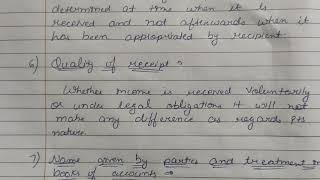 determined at time when it is
received and not afterwards when it
has been appropriated by recipient.
6) Quality of receipt :
Whether income is received voluntarily
or under legal obligations it will not
make any difference as regards its
nature.
7) Name given by parties and treatment in
books of accounts :